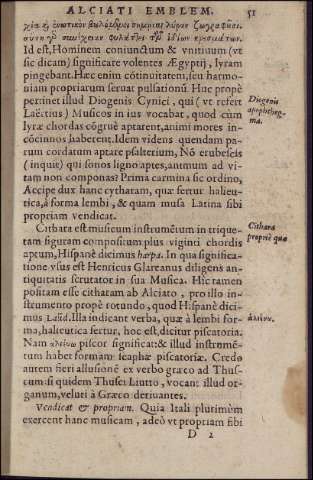 ALCIATI EMBLEM. 51
Id est, Hominem coniunctum & vnitiuum (vt
sic dicam) significare volentes Ægyptij, lyram
pingebant. Hæc enim cõtinuitatem, seu harmo-
niam propriarum seruat pulsationũ. Huc propè
pertinet illud Diogenis Cynici, qui (vt refert
Laërtius) Musicos in ius vocabat, quod cum
lyræ chordas cõgruè aptarent, animi mores in-
cõcinnos haberent. Idem videns quendam pa-
rum cordatum aptare psalterium, Nõ erubescis
(inquit) qui sonos ligno aptes, animum ad vi-
tam non componas? Prima carmina sic ordino,
Accipe dux hanc cytharam, quæ fertur halieu-
tica, à forma lembi, & quam musa Latina sibi
propriam vendicat.
Diogenis
apophtheg-
ma.
Cithara est musicum instrumẽtum in trique-
tam figuram compositum plus viginti chordis
aptum, Hispanè dicimus harpa. In qua significa-
tione vsus est Henricus Glareanus diligens an-
tiquitatis scrutator in sua Musica. Hic tamen
positam esse citharam ab Alciato, pro illo in-
strumento propè rotundo, quod Hispanè dici-
mus Laúd. Illa indicant verba, quæ à lembi for-
ma, halieutica fertur, hoc est, dicitur piscatoria.
Nam ἁλιεύω piscor significat: & illud instrumẽ-
tum habet formam scaphæ piscatoriæ. Credo
autem fieri allusionẽ ex verbo græco ad Thus-
cum: si quidem Thusci Liutto, vocant illud or-
ganum, veluti à Græco deriuantes.
Cithara
propriè quæ
ἁλιεύω.
Vendicat & propriam. Quia Itali plurimùm
exercent hanc musicam, adeò vt propriam sibi
D 2